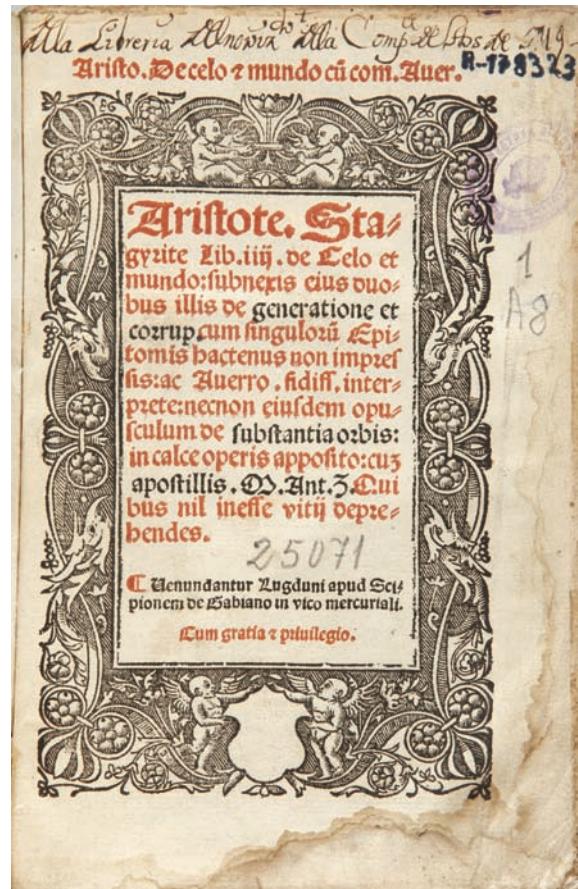 Aristo. De celo ⁊ mundo cū com. Auer.
R-178323
Aristote. Sta-
gyrite Lib. iiij. de Celo et
mundo: subnexis eius duo-
bus illis de generatione et
corrup. cum singulorū Epi-
tomis hactenus non impres
sis: ac Auerro. fidiss. inter-
prete: necnon eiusdem opu-
sculum de substantia orbis:
in calce operis apposito: cuʒ
apostillis. M. Ant. Z. Qui
bus nil inesse vitij depre-
hendes.
25071
¶ Uenundantur Lugduni apud Sci-
pionem de Gabiano in vico mercuriali.
Cum gratia ⁊ priuilegio.
1
A8